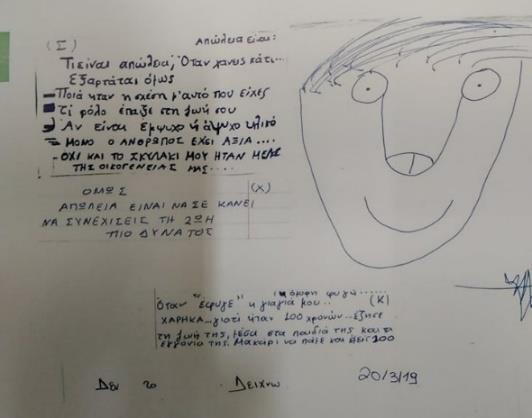 (Σ) Απώλεια είναι:
Τι είναι απώλεια; Όταν χανεις κάτι...
Εξαρτάται όμως
Ποιά ήταν η σχέση μ'αυτό που είχες
Τί ρόλο έπαιξε στη ζωή σου
Αν είναι έμψυχο ή άψυχο υλικό
- ΜΟΝΟ Ο ΑΝΘΡΩΠΟΣ ΕΧΕΙ ΑΞΙΑ....
- ΟΧΙ ΚΑΙ ΤΟ ΣΚΥΛΑΚΙ ΜΟΥ ΗΤΑΝ ΜΕΛΟΣ
ΤΗΣ ΟΙΚΟΓΕΝΕΙΑΣ ΜΑΣ....
ΟΜΩΣ (Χ)
ΑΠΩΛΕΙΑ ΕΙΝΑΙ ΝΑ ΣΕ ΚΑΝΕΙ
ΝΑ ΣΥΝΕΧΙΣΕΙΣ ΤΗ ΖΩΗ
ΠΙΟ ΔΥΝΑΤΟΣ
Όταν "έφυγε" η γιαγιά μου.. (Κ)
ΧΑΡΗΚΑ...γιατί ήταν 100 χρονών...έζησε
τη ζωή της, μέσα στα παιδιά της και τα
εγγόνια της. Μακάρι να πάμε και εμείς 100
Δεν το Δείχνω
20/3/19